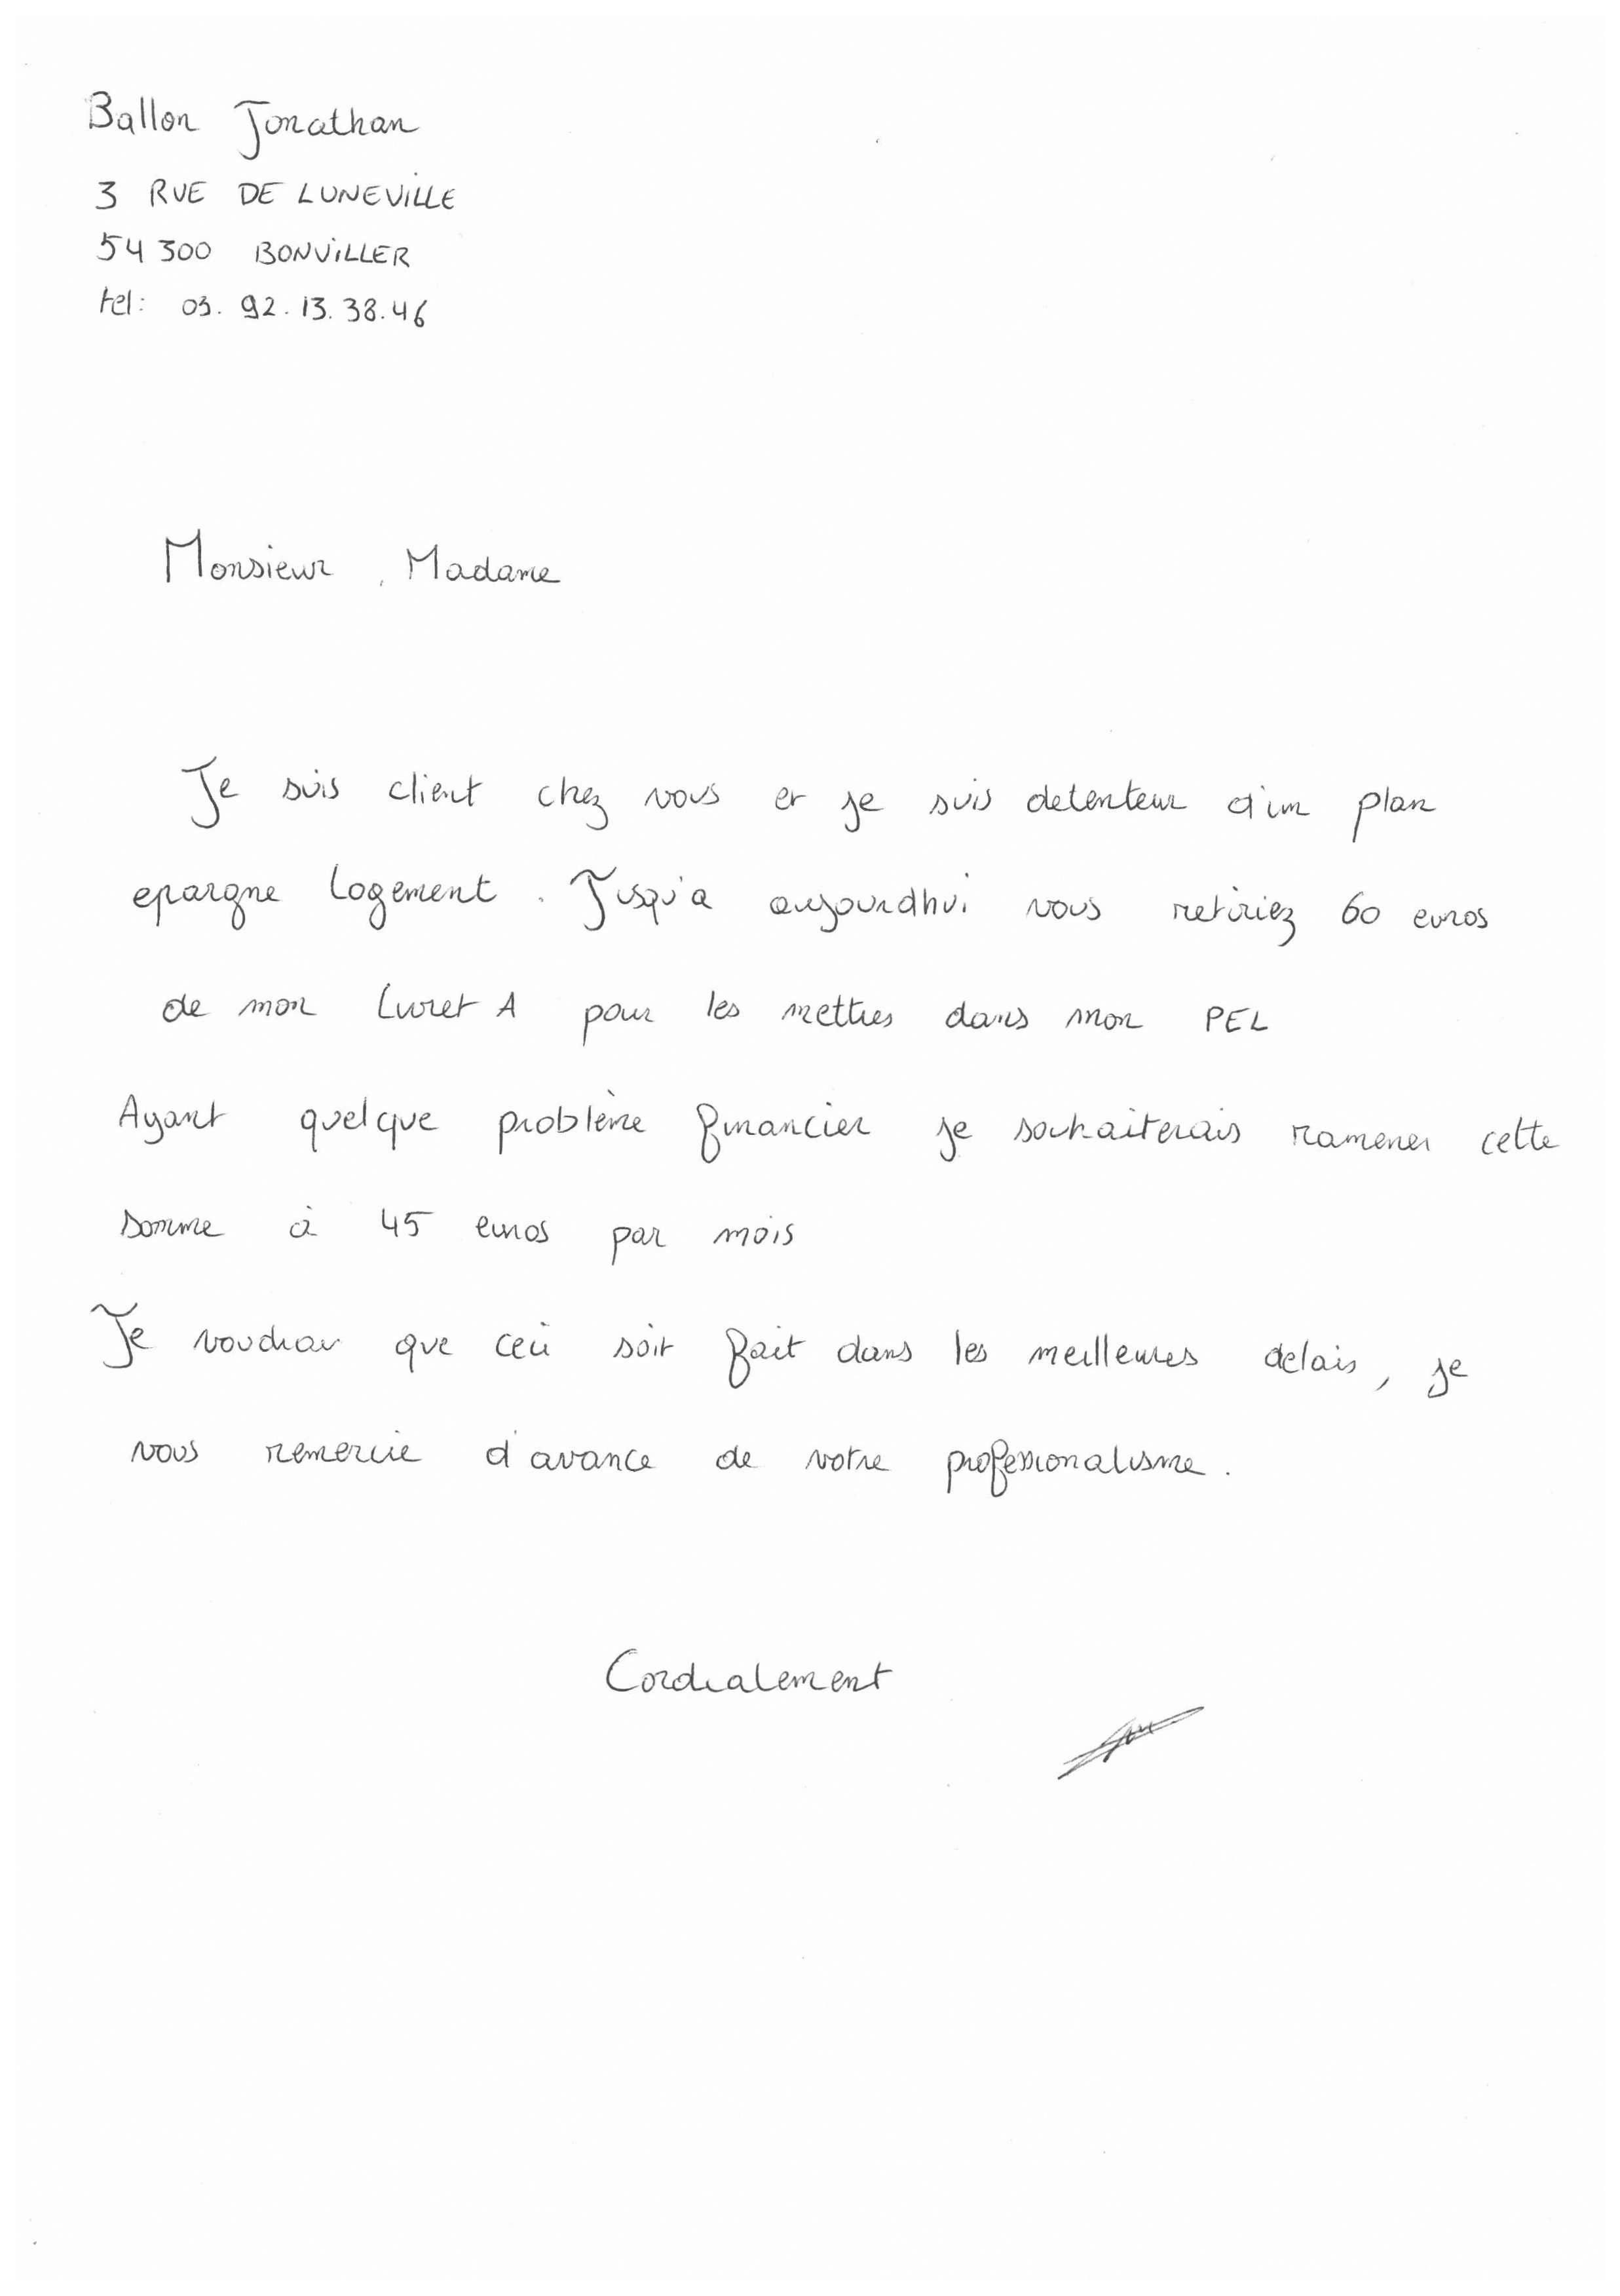 Ballon Jonathan
3 RUE DE LUNEVILLE
54 300 BONVILLER
tel: 03. 92. 13. 38. 46
Monsieur, Madame
Je suis client chez vous et je suis detenteur d'un plan
epargne logement. Jusqu'a aujourdhui vous retiriez 60 euros
de mon Livret A pour les mettres dans mon PEL
Ayant quelque problème financier je souhaiterais ramener cette
somme à 45 euros par mois
Je voudrai que ceci soit fait dans les meilleures delais, je
vous remercie d'avance de votre professionalisme.
Cordialement